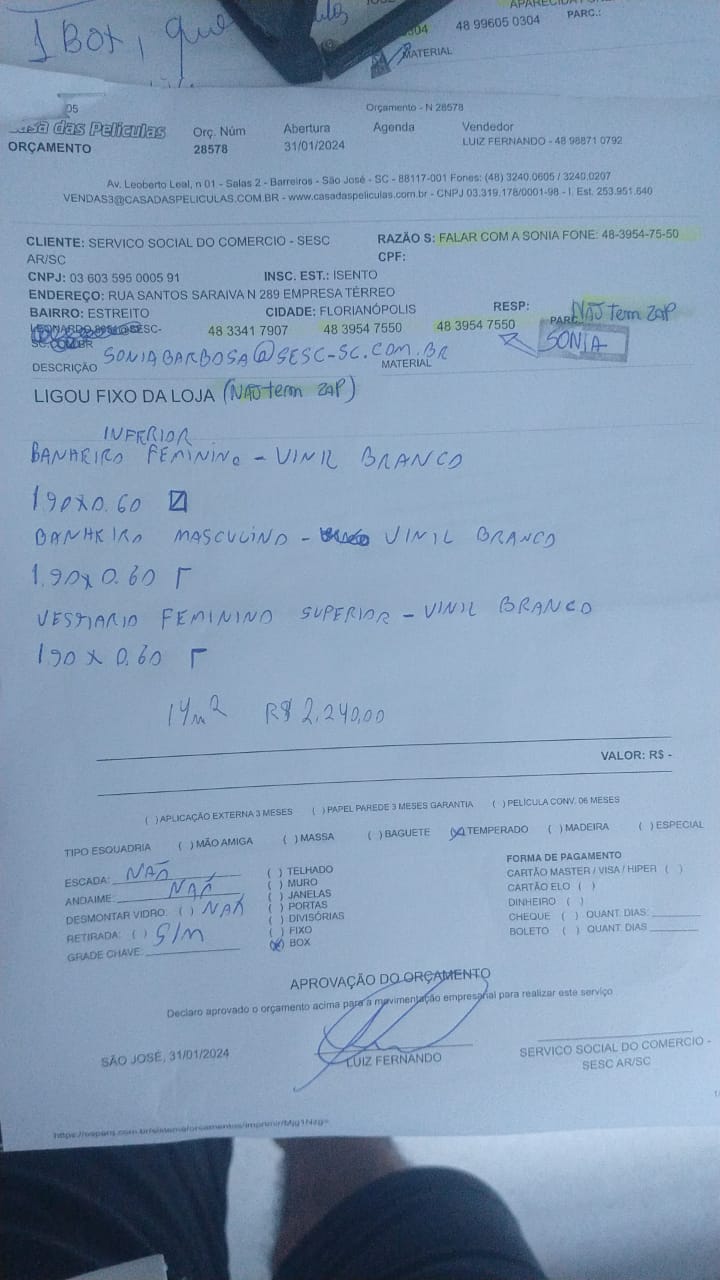 1 BOX, que
48 99605 0304 PARC.:
MATERIAL
Orçamento - N 28578
Casa das Películas
ORÇAMENTO
Orç. Núm Abertura Agenda Vendedor
28578 31/01/2024 LUIZ FERNANDO - 48 98871 0792
Av. Leoberto Leal, n 01 - Salas 2 - Barreiros - São José - SC - 88117-001 Fones: (48) 3240.0605 / 3240.0207
VENDAS3@CASADASPELICULAS.COM.BR - www.casadaspeliculas.com.br - CNPJ 03.319.178/0001-98 - I. Est. 253.951.640
CLIENTE: SERVICO SOCIAL DO COMERCIO - SESC AR/SC
RAZÃO S: FALAR COM A SONIA FONE: 48-3954-75-50
CPF:
CNPJ: 03 603 595 0005 91 INSC. EST.: ISENTO
ENDEREÇO: RUA SANTOS SARAIVA N 289 EMPRESA TÉRREO
BAIRRO: ESTREITO CIDADE: FLORIANÓPOLIS RESP: NÃO tem ZAP
48 3341 7907 48 3954 7550 48 3954 7550 PARC.: SONIA
SONIABARBOSA@SESC-SC.COM.BR
DESCRIÇÃO MATERIAL
LIGOU FIXO DA LOJA (NÃO tem ZAP)
INFERIOR
BANHEIRO FEMININO - VINIL BRANCO
1.90X0.60
BANHEIRO MASCULINO - VINIL BRANCO
1.90x0.60
VESTIARIO FEMININO SUPERIOR - VINIL BRANCO
1.90 x 0.60
14m² R$ 2.240,00
VALOR: R$ -
( ) APLICAÇÃO EXTERNA 3 MESES ( ) PAPEL PAREDE 3 MESES GARANTIA ( ) PELÍCULA CONV. 06 MESES
TIPO ESQUADRIA ( ) MÃO AMIGA ( ) MASSA ( ) BAGUETE (X) TEMPERADO ( ) MADEIRA ( ) ESPECIAL
ESCADA: NÃO
ANDAIME: NÃO
DESMONTAR VIDRO: ( ) NÃO
RETIRADA: ( ) SIM
GRADE CHAVE:
( ) TELHADO
( ) MURO
( ) JANELAS
( ) PORTAS
( ) DIVISÓRIAS
( ) FIXO
(X) BOX
FORMA DE PAGAMENTO
CARTÃO MASTER / VISA / HIPER ( )
CARTÃO ELO ( )
DINHEIRO ( )
CHEQUE ( ) QUANT. DIAS:
BOLETO ( ) QUANT. DIAS
APROVAÇÃO DO ORÇAMENTO
Declaro aprovado o orçamento acima para a movimentação empresarial para realizar este serviço
SÃO JOSÉ, 31/01/2024
LUIZ FERNANDO
SERVICO SOCIAL DO COMERCIO -
SESC AR/SC